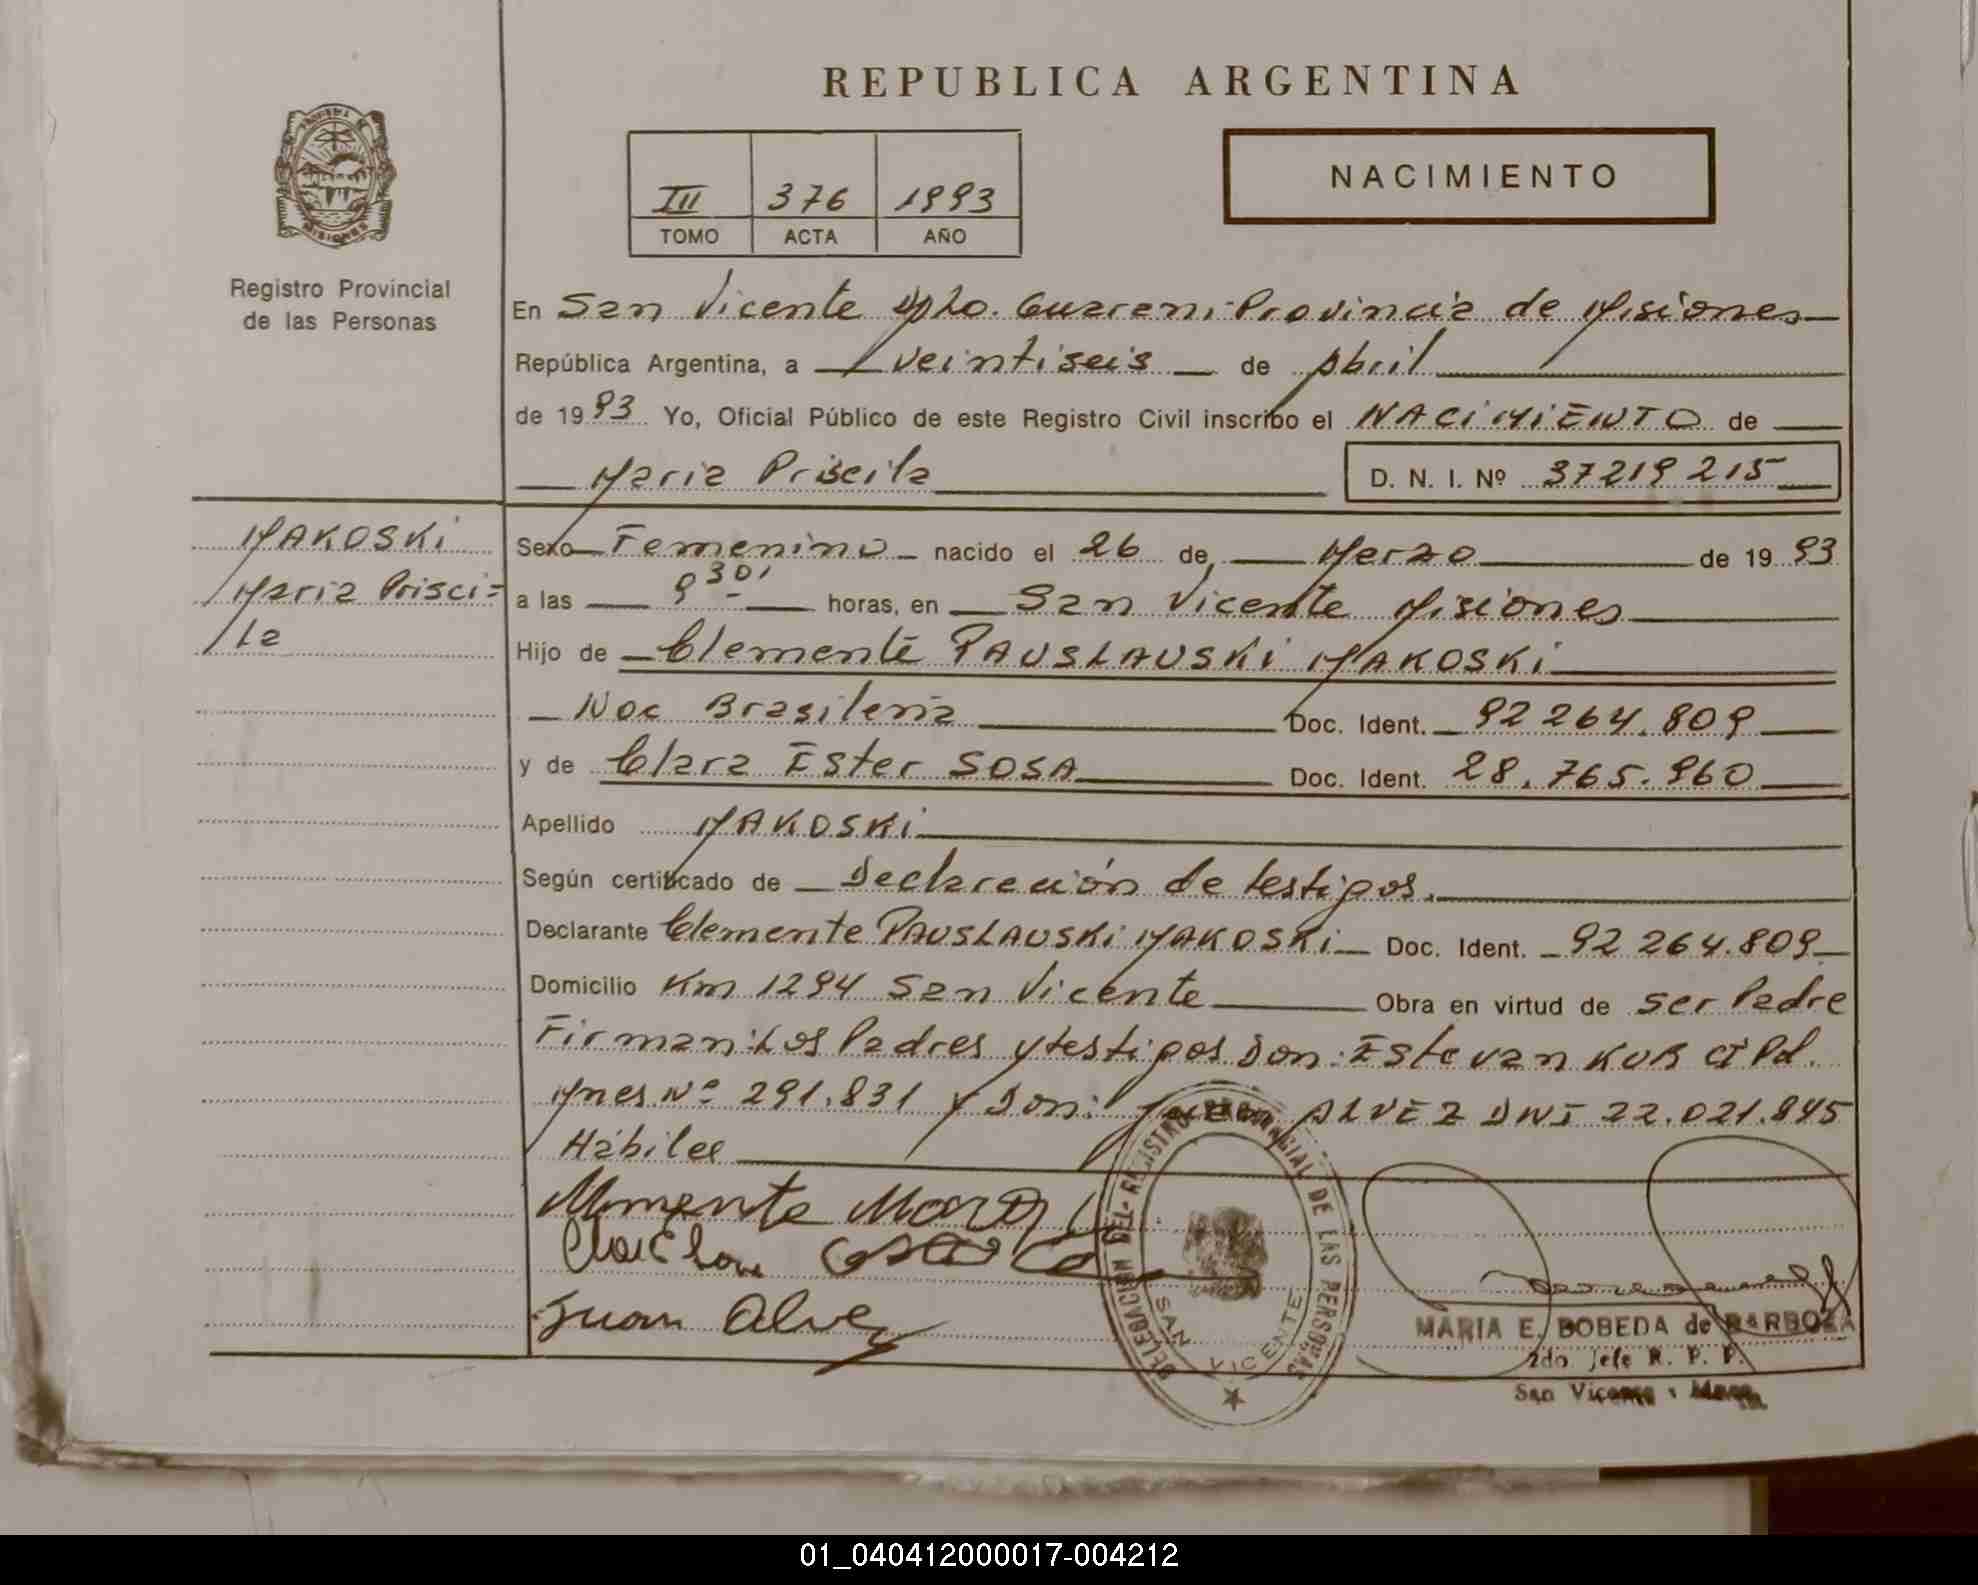 REPUBLICA ARGENTINA
PROVINCIA DE
MISIONES
Registro Provincial
de las Personas
III 376 1993
TOMO ACTA AÑO
NACIMIENTO
En San Vicente Dpto. Guarani Provincia de Misiones
República Argentina, a veintiseis de Abril
de 1993 Yo, Oficial Público de este Registro Civil inscribo el NACIMIENTO de
Maria Priscila D. N. I. Nº 37219215
MAKOSKI
Maria Prisci=
la
Sexo Femenino nacido el 26 de Marzo de 1993
a las 9 30' horas, en San Vicente Misiones
Hijo de Clemente PAUSLAUSKI MAKOSKI
Nac Brasileña Doc. Ident. 92 264.809
y de Clara Ester SOSA Doc. Ident. 28.765.960
Apellido MAKOSKI
Según certificado de Declaración de testigos.
Declarante Clemente PAUSLAUSKI MAKOSKI Doc. Ident. 92 264.809
Domicilio Km 1294 San Vicente Obra en virtud de ser Padre
Firman: Los Padres y testigos Don: Estevan KUB CI Pol.
Mnes Nº 291.831 y Don: Juan ALVEZ DNI 22.021.845
Hábiles
Juan Alvez
DELEGACION DEL REGISTRO PROVINCIAL DE LAS PERSONAS
SAN VICENTE
MARIA E. BOBEDA de BARBOZA
2do Jefe R. P. P.
San Vicente - Mnes
01_040412000017-004212